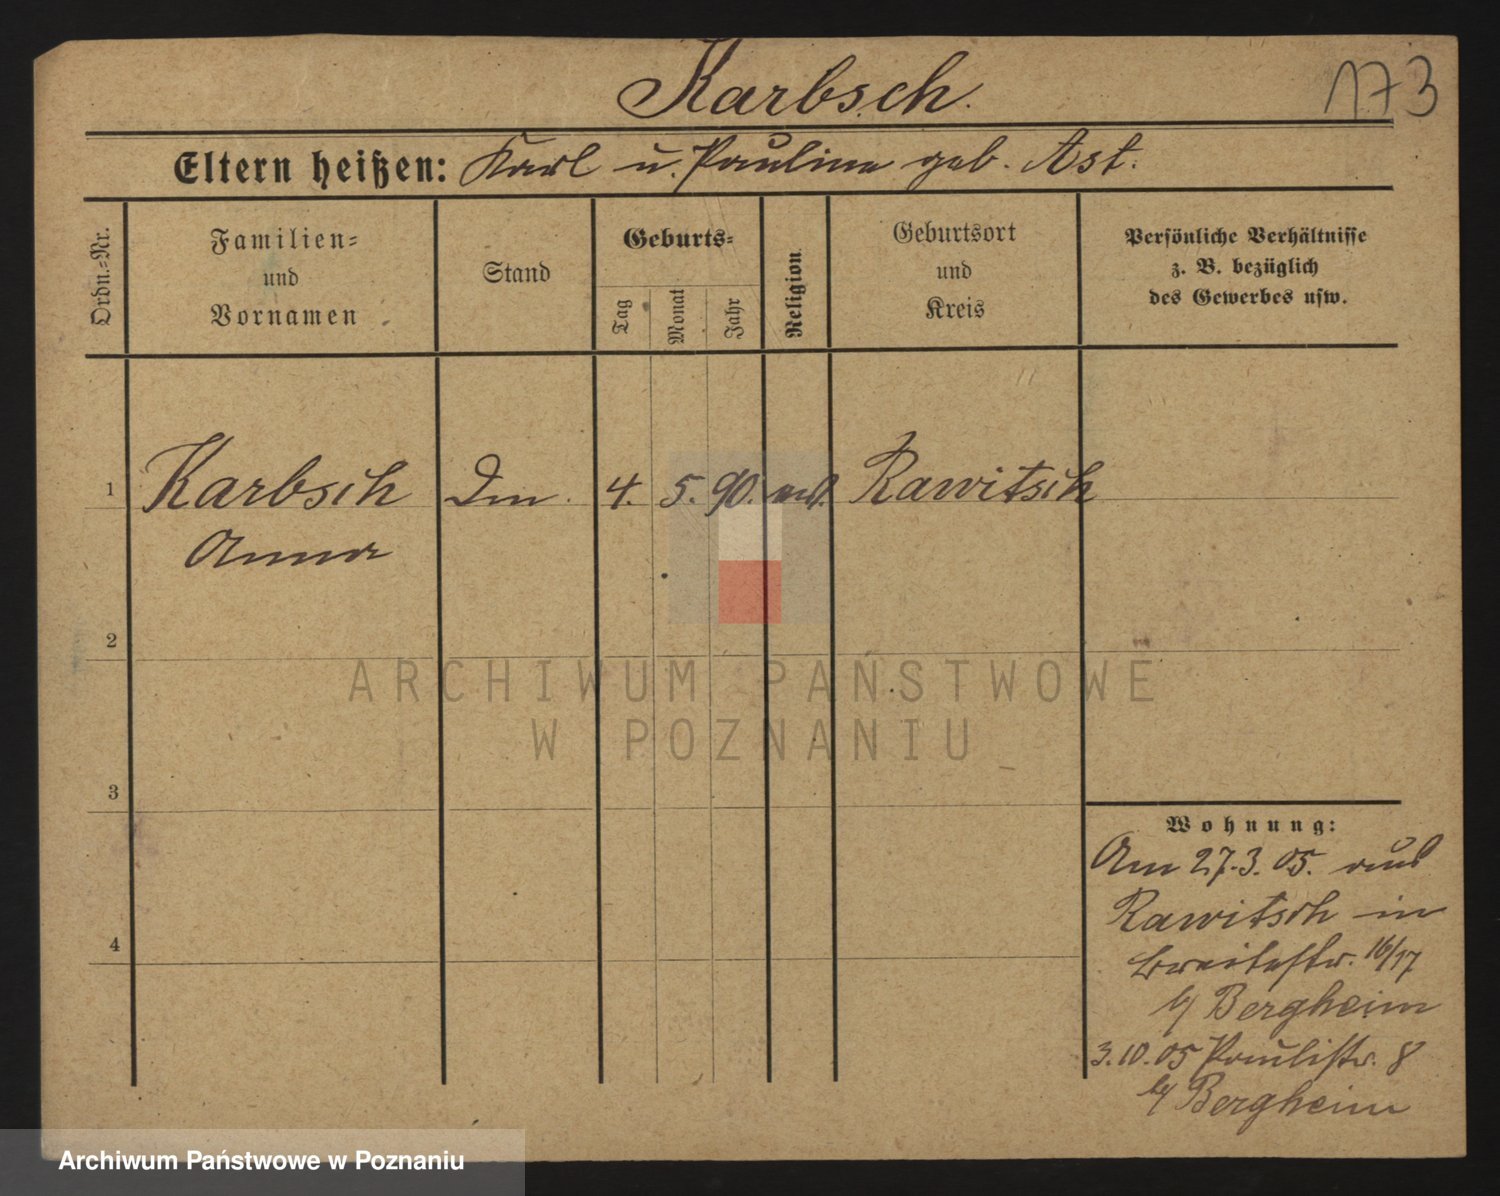 Karbsch.
173
Eltern heißen: Karl u. Pauline geb. Ast.
Ordn.-Nr.
Familien-
und
Vornamen
Stand
Geburts-
Tag
Monat
Jahr
Religion
Geburtsort
und
Kreis
Persönliche Verhältnisse
z. B. bezüglich
des Gewerbes usw.
1
Karbsch
Anna
4. 5. 90.
Rawitsch
2
3
4
ARCHIWUM PAŃSTWOWE
W POZNANIU
Wohnung:
Am 27.3.05. aus
Rawitsch in
Breitestr. 16/17
b/ Bergheim
3.10.05 Paulistr. 8
b/ Bergheim
Archiwum Państwowe w Poznaniu